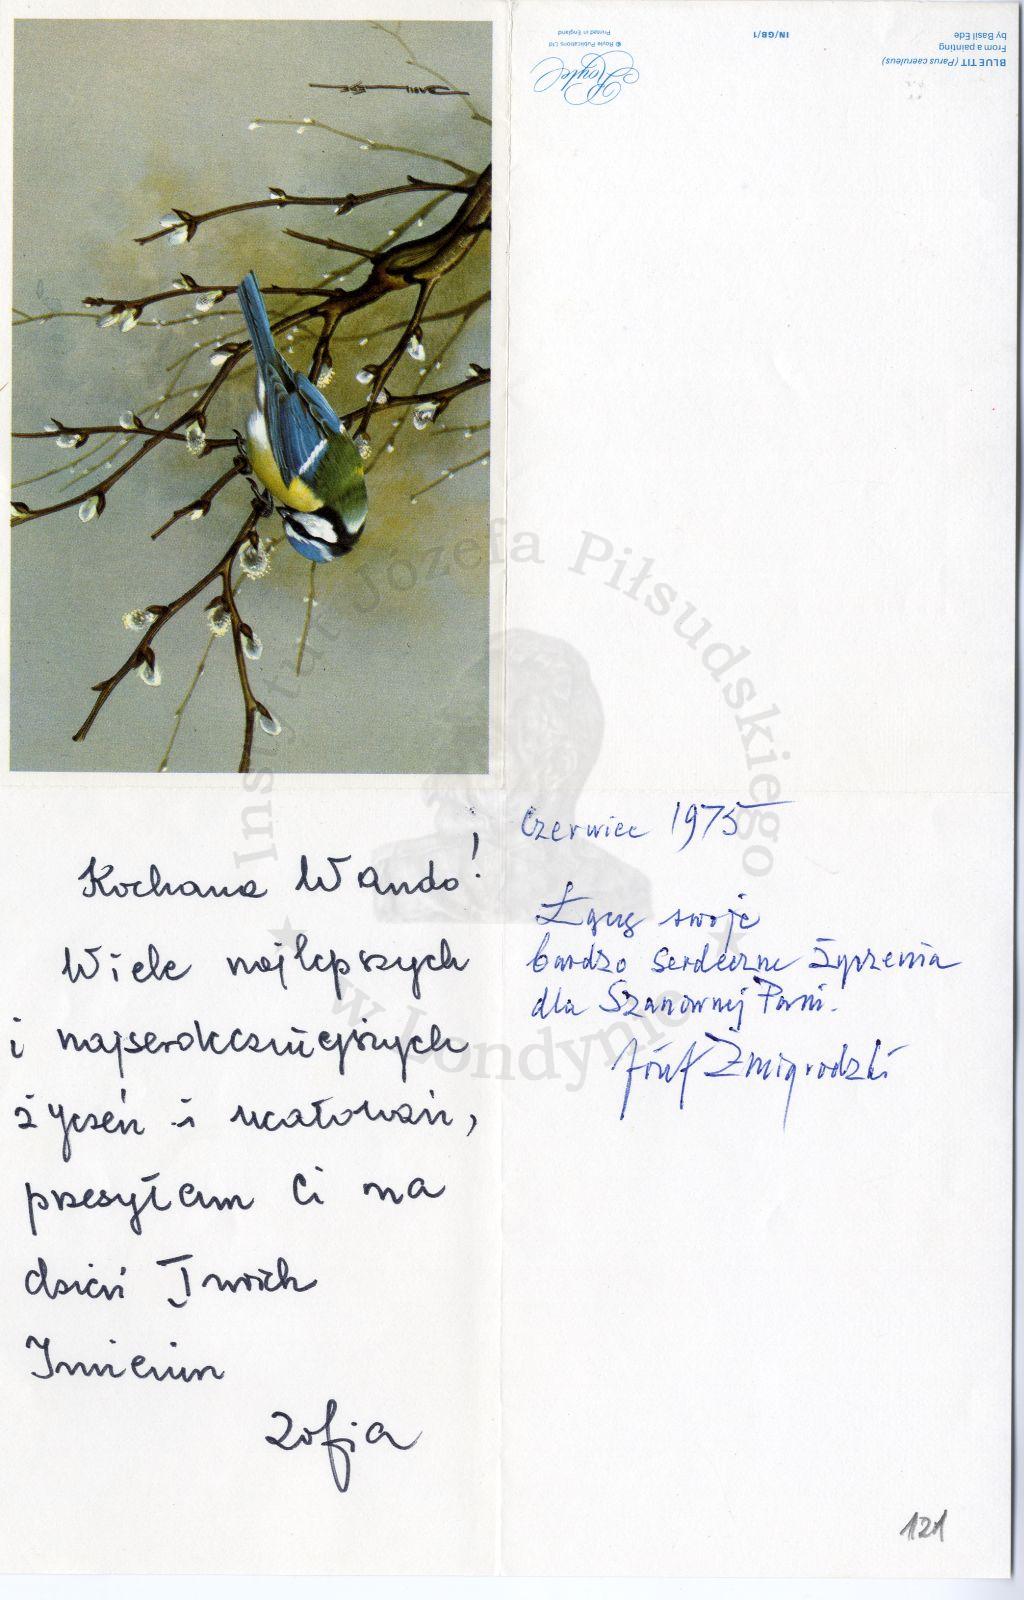 BASIL EDE
BLUE TIT (Parus caeruleus)
From a painting
by Basil Ede
IN/GB/1
Royle
© Royle Publications Ltd
Printed in England
Instytut Józefa Piłsudskiego
w Londynie
Kochana Wando!
Wiele najlepszych
i najserdeczniejszych
życzeń i ucałowań,
przesyłam Ci na
dzień Twoich
Imienin
Zofia
Czerwiec 1975
Łączę swoje
bardzo serdeczne życzenia
dla Szanownej Pani.
Józef Żmigrodzki
121